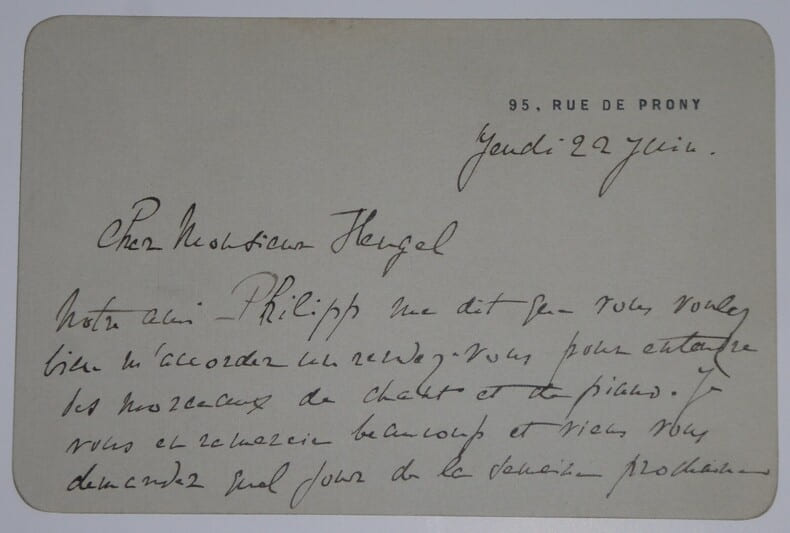 95, RUE DE PRONY
Jeudi 22 Juin.
Cher Monsieur Heugel
Notre ami Philipp me dit que vous voulez
bien m'accorder un rendez-vous pour entendre
des morceaux de chant et de piano. Je
vous en remercie beaucoup et viens vous
demander quel jour de la semaine prochaine